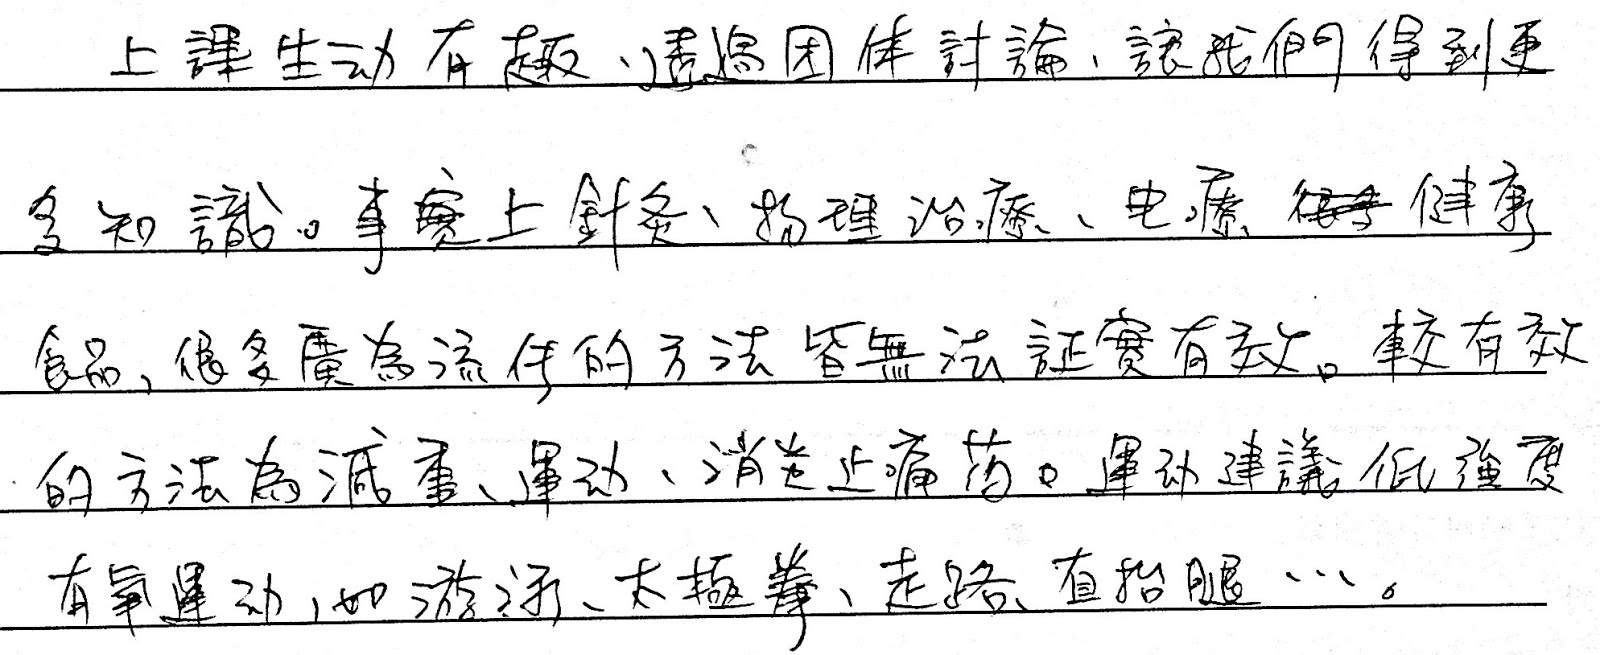 上課生动有趣、透過团体討論、讓我們得到更
多知識。事實上針灸、物理治療、电療、健康
食品，很多廣為流传的方法皆無法証實有效。較有效
的方法為減重、運动、消炎止痛药。運动建議低強度
有氧運动，如游泳、太極拳、走路、直抬腿…。